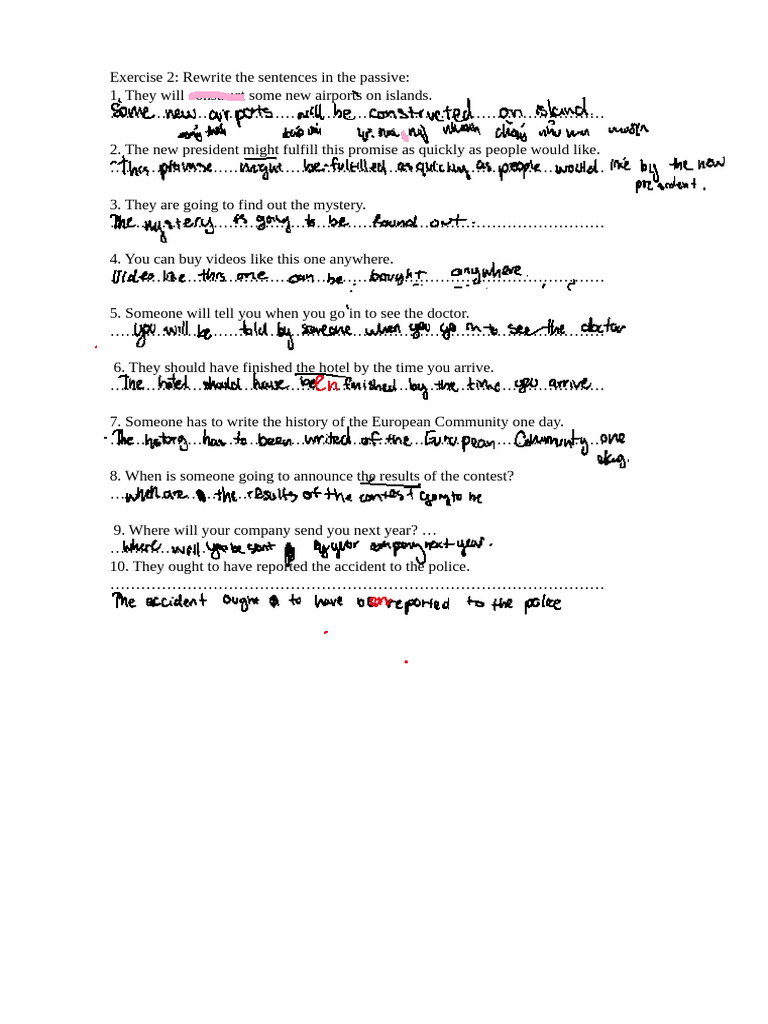 Exercise 2: Rewrite the sentences in the passive:
1. They will construct some new airports on islands.
Some new airports will be constructed on island
2. The new president might fulfill this promise as quickly as people would like.
This promise might be fulfilled as quickly as people would like by the new
president.
3. They are going to find out the mystery.
The mystery is going to be found out.
4. You can buy videos like this one anywhere.
Video like this one can be bought anywhere
5. Someone will tell you when you go in to see the doctor.
You will be told by someone when you go in to see the doctor
6. They should have finished the hotel by the time you arrive.
The hotel should have been finished by the time you arrive
7. Someone has to write the history of the European Community one day.
The history has to been writed of the European Community one
day.
8. When is someone going to announce the results of the contest?
when are the results of the contest going to be
9. Where will your company send you next year? …
where will you be sent by your company next year.
10. They ought to have reported the accident to the police.
The accident ought to have been reported to the police